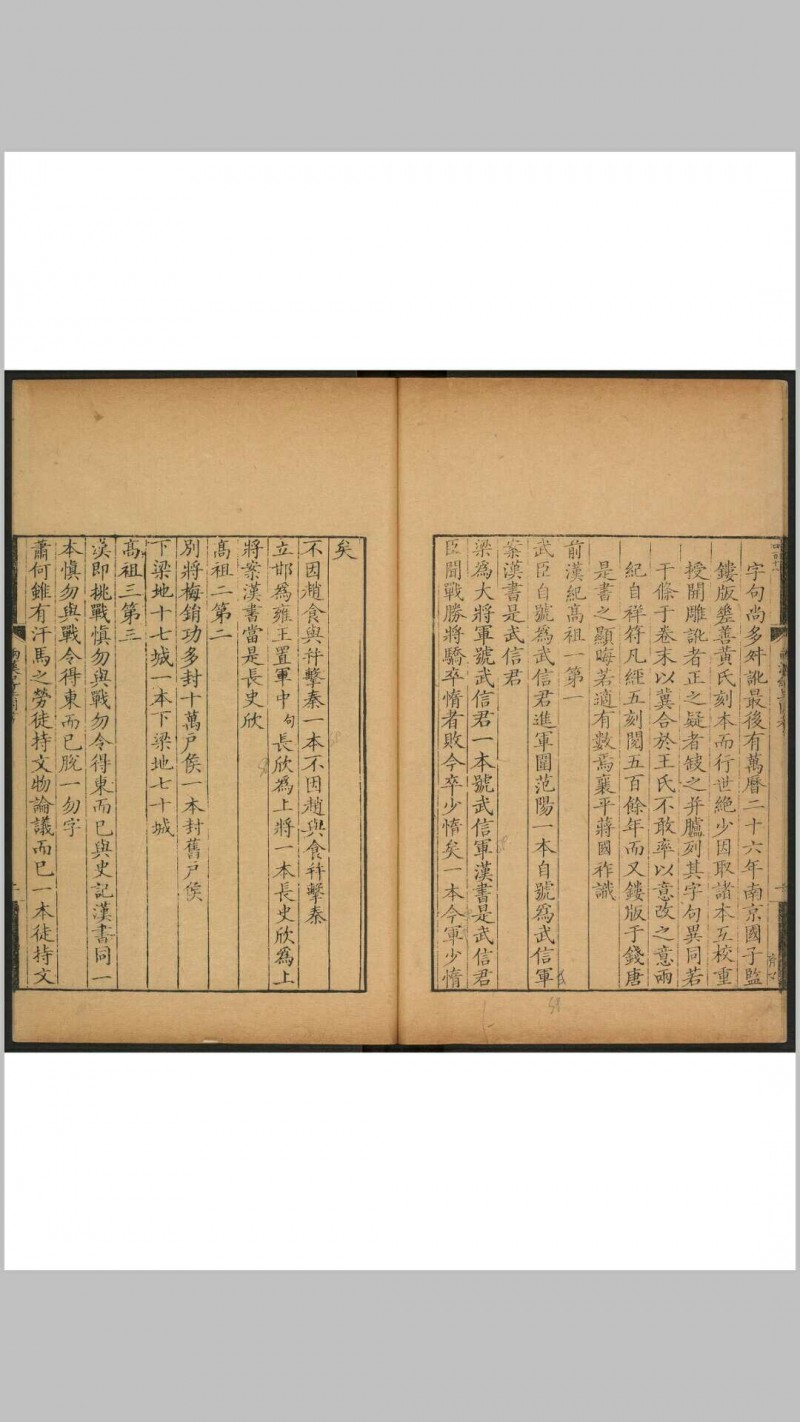 字句尚多舛訛最後有萬曆二十六年南京國子監
鏤版㝡善黃氏刻本而行世絶少因取諸本互校重
授開雕訛者正之疑者𨷂之并臚列其字句異同若
干條于卷末以冀合於王氏不敢率以意改之意兩
紀自祥符凡經五刻閱五百餘年而又鏤版于錢唐
是書之顯晦若適有數焉襄平蔣國祚識
前漢紀髙祖一第一
武臣自號爲武信君進軍圍范陽一本自號爲武信軍
案漢書是武信君
梁爲大將軍號武信君一本號武信軍漢書是武信君
臣聞戰勝將驕卒惰者敗今卒少惰矣一本今軍少惰
矣
不因趙食與幷擊秦一本不因趙與食幷擊秦
立邯爲雍王置軍中句長欣爲上將一本長史欣爲上
將案漢書當是長史欣
髙祖二第二
別將梅鋗功多封十萬戸侯一本封舊戸侯
下梁地十七城一本下梁地七十城
髙祖三第三
漢即挑戰愼勿與戰勿令得東而已與史記漢書同一
本愼勿與戰令得東而已脫一勿字
蕭何雖有汗馬之勞徒持文物論議而已一本徒持文